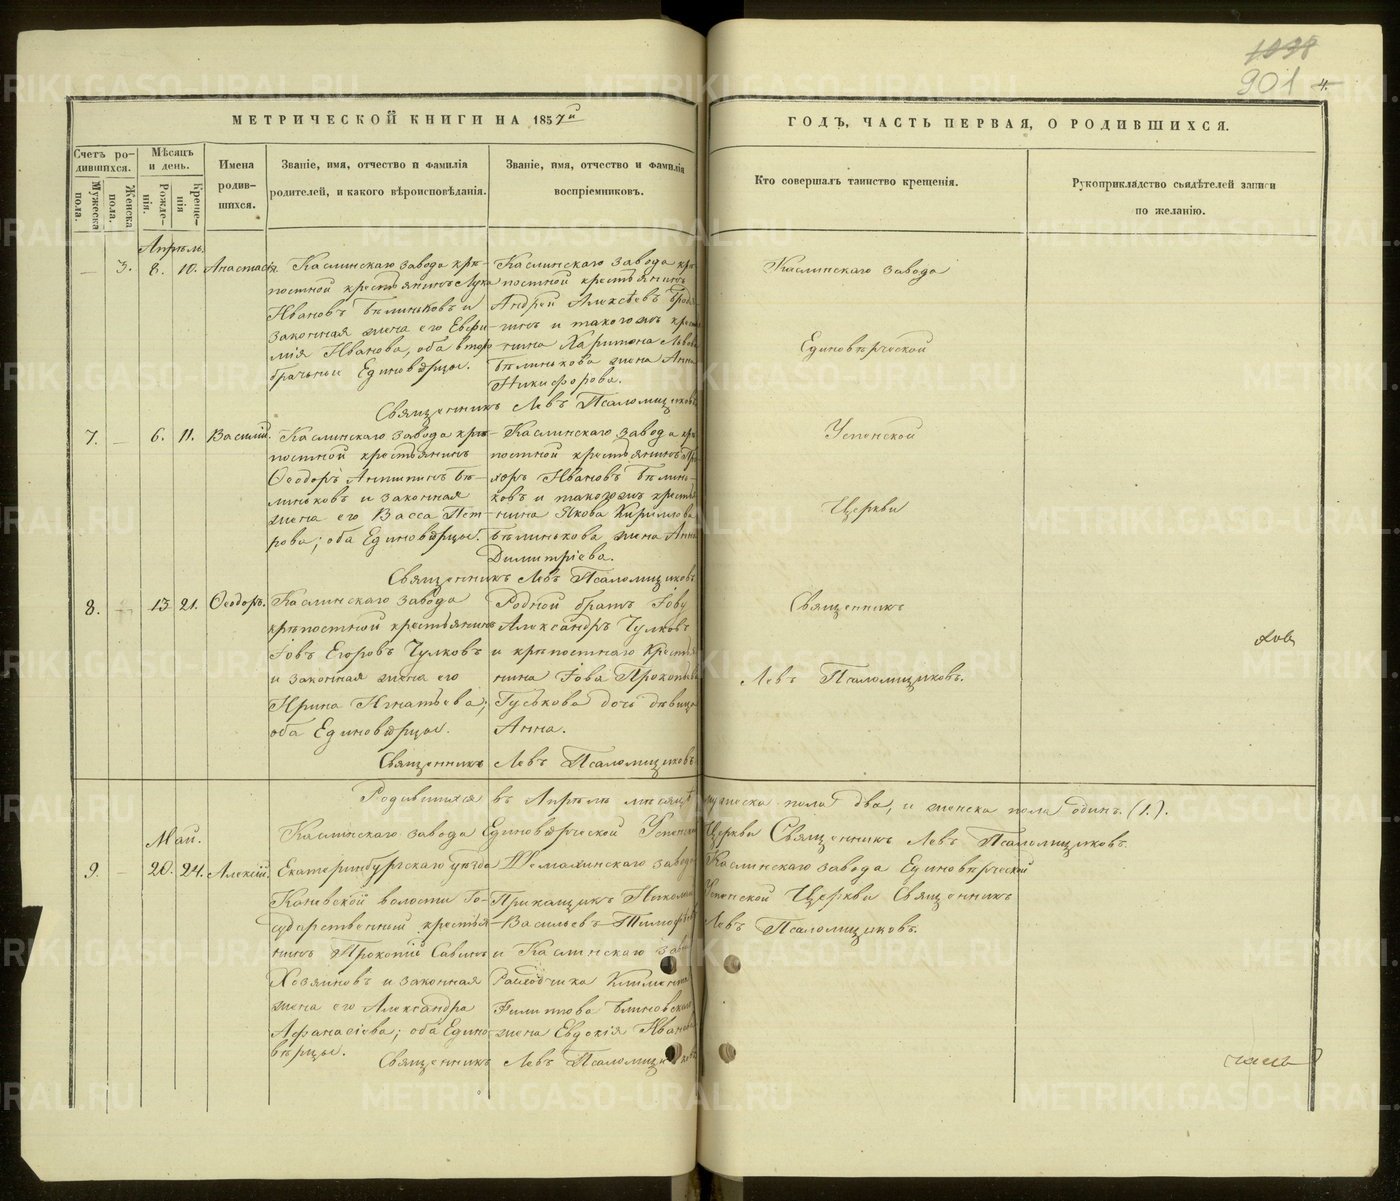 1098
901
4.
МЕТРИЧЕСКОЙ КНИГИ НА 1857й
ГОДЪ, ЧАСТЬ ПЕРВАЯ, О РОДИВШИХСЯ.
Счетъ ро-
дившихся.
Мужеска
пола.
Женска
пола.
Мѣсяцъ
и день.
Рожде-
нія.
Креще-
нія
Имена
родив-
шихся.
Званіе, имя, отчество и фамилія
родителей, и какого вѣроисповѣданія.
Званіе, имя, отчество и фамилія
воспріемниковъ.
Кто совершалъ таинство крещенія.
Рукоприкладство свидѣтелей записи
по желанію.
Апрѣль.
3. 8. 10. Анастасія.
Каслинскаго завода крѣ-
постной крестьянинъ Лука
Ивановъ Бѣлиньковъ и
законная жена его Евфи-
мія Иванова, оба второ-
брачные Единовѣрцы.
Каслинскаго завода крѣ-
постной крестьянинъ
Андрей Алексѣевъ
и такогожъ крестья-
нина Харитона
Бѣлинькова жена Анна
Никифорова.
Священникъ Левъ Псаломщиковъ
Каслинскаго завода
Единовѣрческой
Успенской
Церкви
Священникъ
Левъ Псаломщиковъ.
7. 6. 11. Василій.
Каслинскаго завода крѣ-
постной крестьянинъ
Ѳеодоръ Антипинъ Бѣ-
линьковъ и законная
жена его Васса Пет-
рова; оба Единовѣрцы.
Каслинскаго завода крѣ-
постной крестьянинъ Про-
хоръ Ивановъ Бѣлинь-
ковъ и такогожъ крестья-
нина Якова Кириллова
Бѣлинькова жена Анна
Димитріева.
Священникъ Левъ Псаломщиковъ
8. 13. 21. Ѳеодоръ.
Каслинскаго завода
крѣпостной крестьянинъ
Іовъ Егоровъ Чулковъ
и законная жена его
Ирина Игнатьева;
оба Единовѣрцы.
Родной братъ Іову
Александръ Чулковъ
и крѣпостнаго Крестья-
нина Іова Прокопьева
Гуськова дочь дѣвица
Анна.
Священникъ Левъ Псаломщиковъ
Родившихся въ Апрѣлѣ мѣсяцѣ мужеска пола два, и женска пола одинъ (1.).
Каслинскаго завода Единовѣрческой Успенской Церкви Священникъ Левъ Псаломщиковъ.
Май.
9. 20. 24. Алексій.
Екатеринбургскаго уѣзда
волости Го-
сударственный крестья-
нинъ Прокопій Савинъ
Хозяиновъ и законная
жена его Александра
Афанасіева; оба Едино-
вѣрцы.
Шемахинскаго завода
Прикащикъ Николай
Васильевъ
и Каслинскаго завода
Климента
Филиппова
жена Евдокія Иванова
Священникъ Левъ Псаломщиковъ
Каслинскаго завода Единовѣрческой
Успенской Церкви Священникъ
Левъ Псаломщиковъ.
METRIKI.GASO-URAL.RU